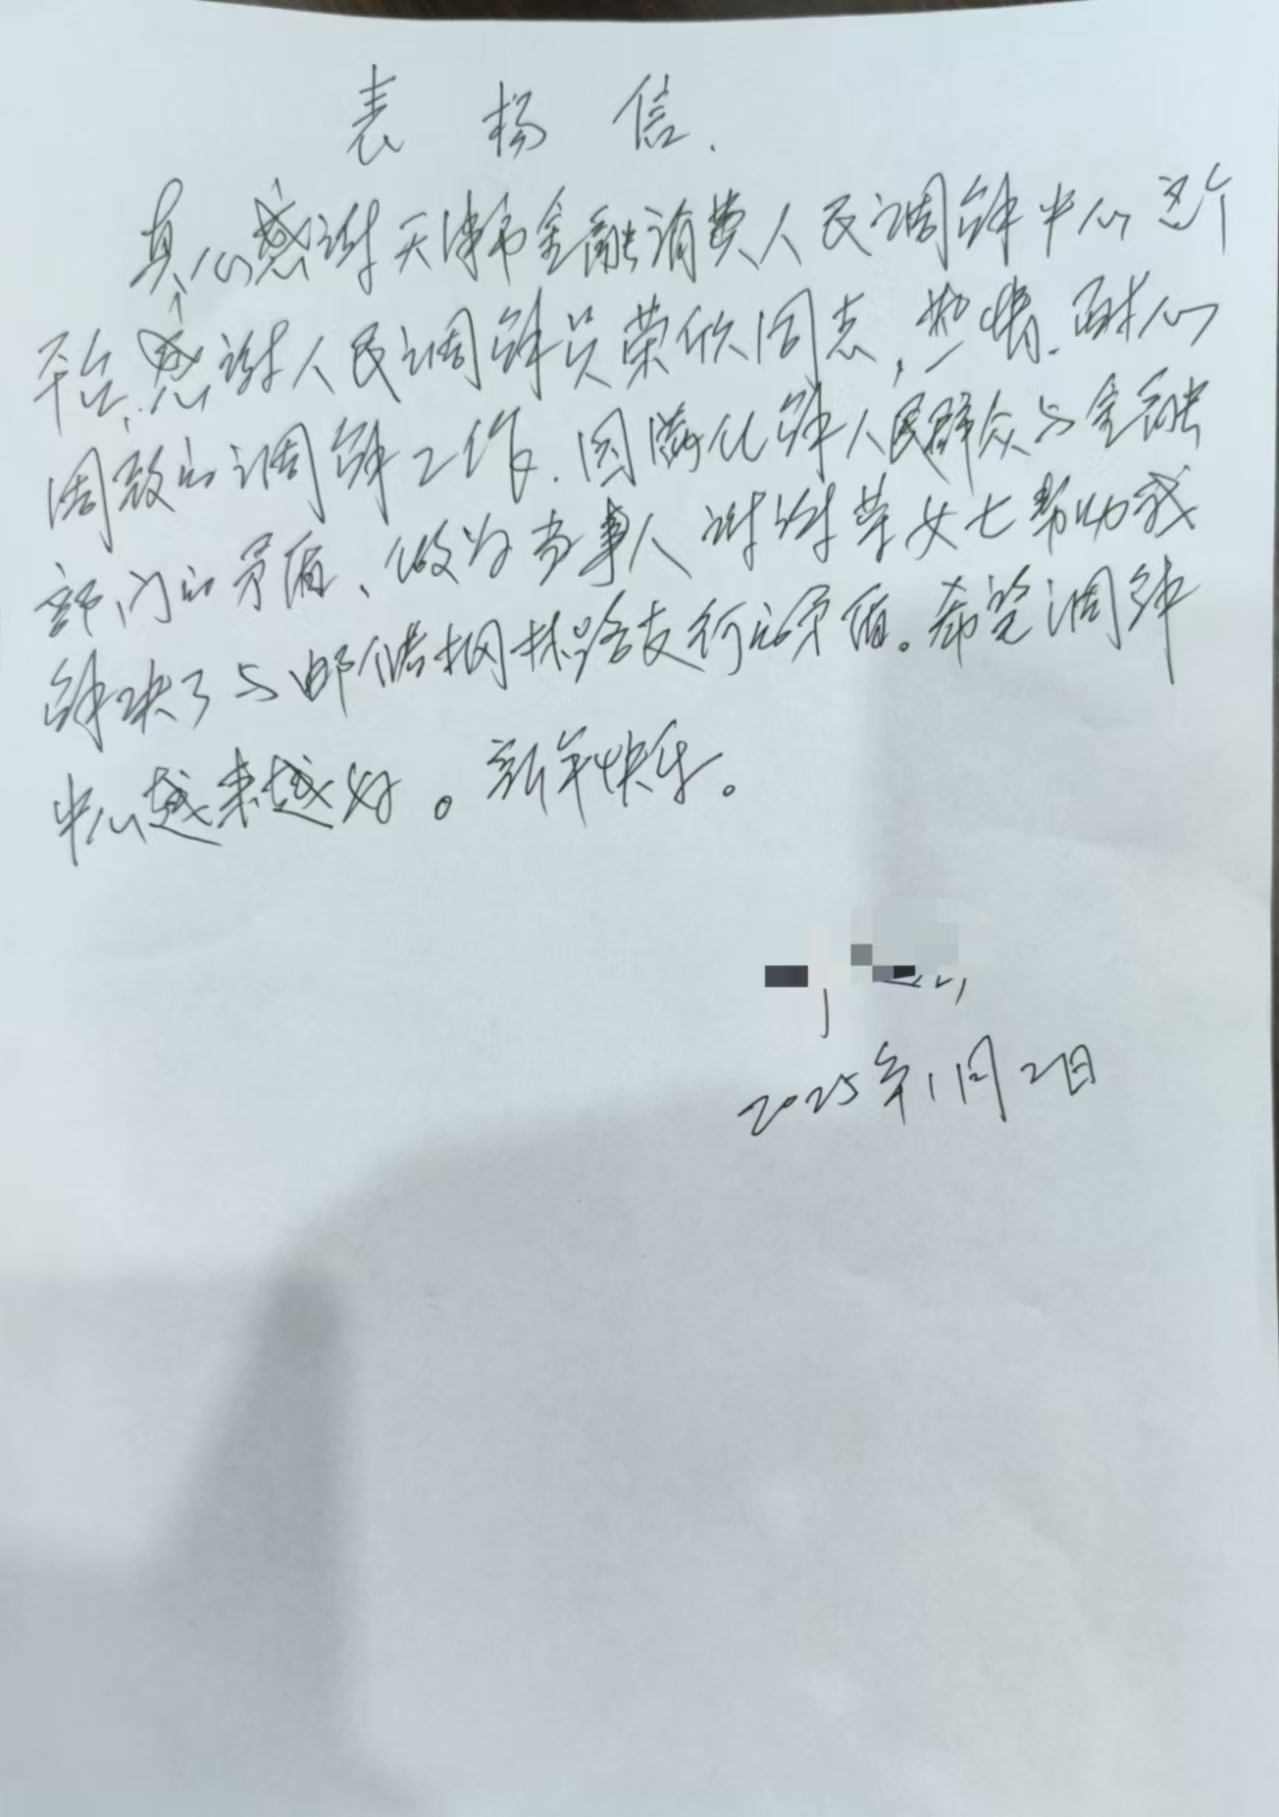 表扬信.
真心感谢天津市金融消费人民调解中心这个
平台,感谢人民调解员荣欣同志,热情.耐心
周致的调解工作.圆满化解人民群众与金融
部门的矛盾、做为当事人谢谢荣女士帮助我
解决了与邮储桐林路支行的矛盾。希望调解
中心越来越好。新年快乐。
2025年1月2日